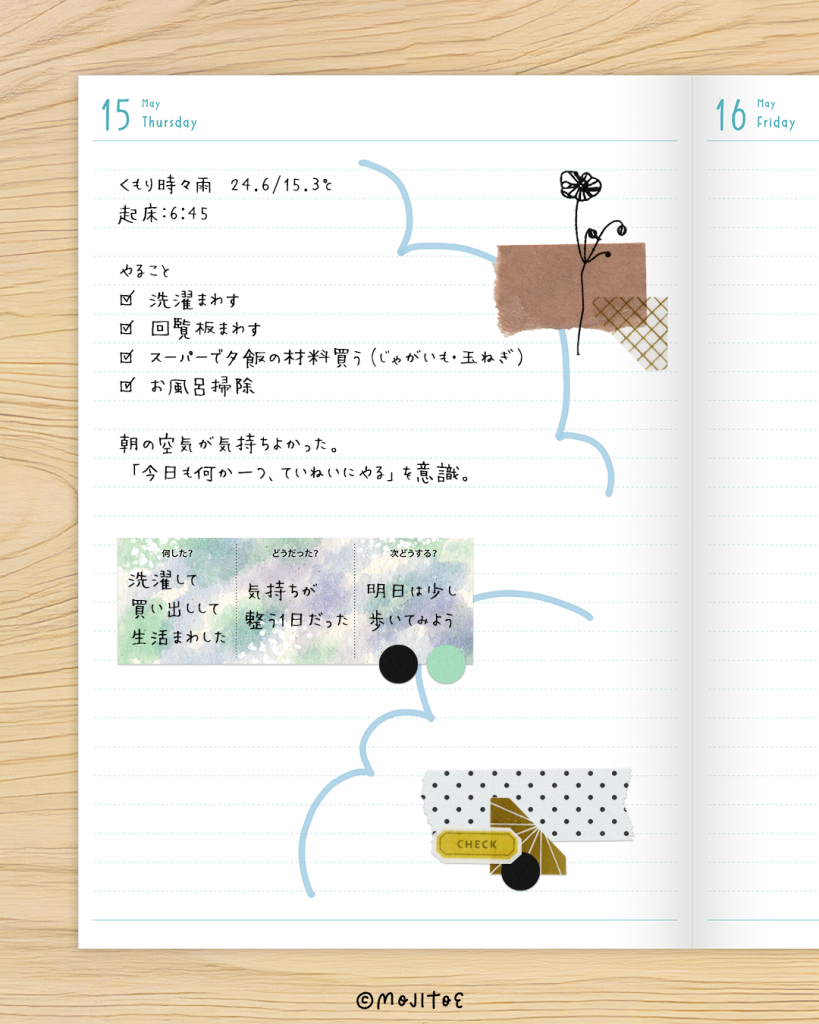 15 May
Thursday
16 May
Friday
くもり時々雨 24.6/15.3℃
起床:6:45
やること
☑ 洗濯まわす
☑ 回覧板まわす
☑ スーパーで夕飯の材料買う(じゃがいも・玉ねぎ)
☑ お風呂掃除
朝の空気が気持ちよかった。
「今日も何か一つ、ていねいにやる」を意識。
何した?
洗濯して
買い出しして
生活まわした
どうだった?
気持ちが
整う1日だった
次どうする?
明日は少し
歩いてみよう
CHECK
©MOJITOE